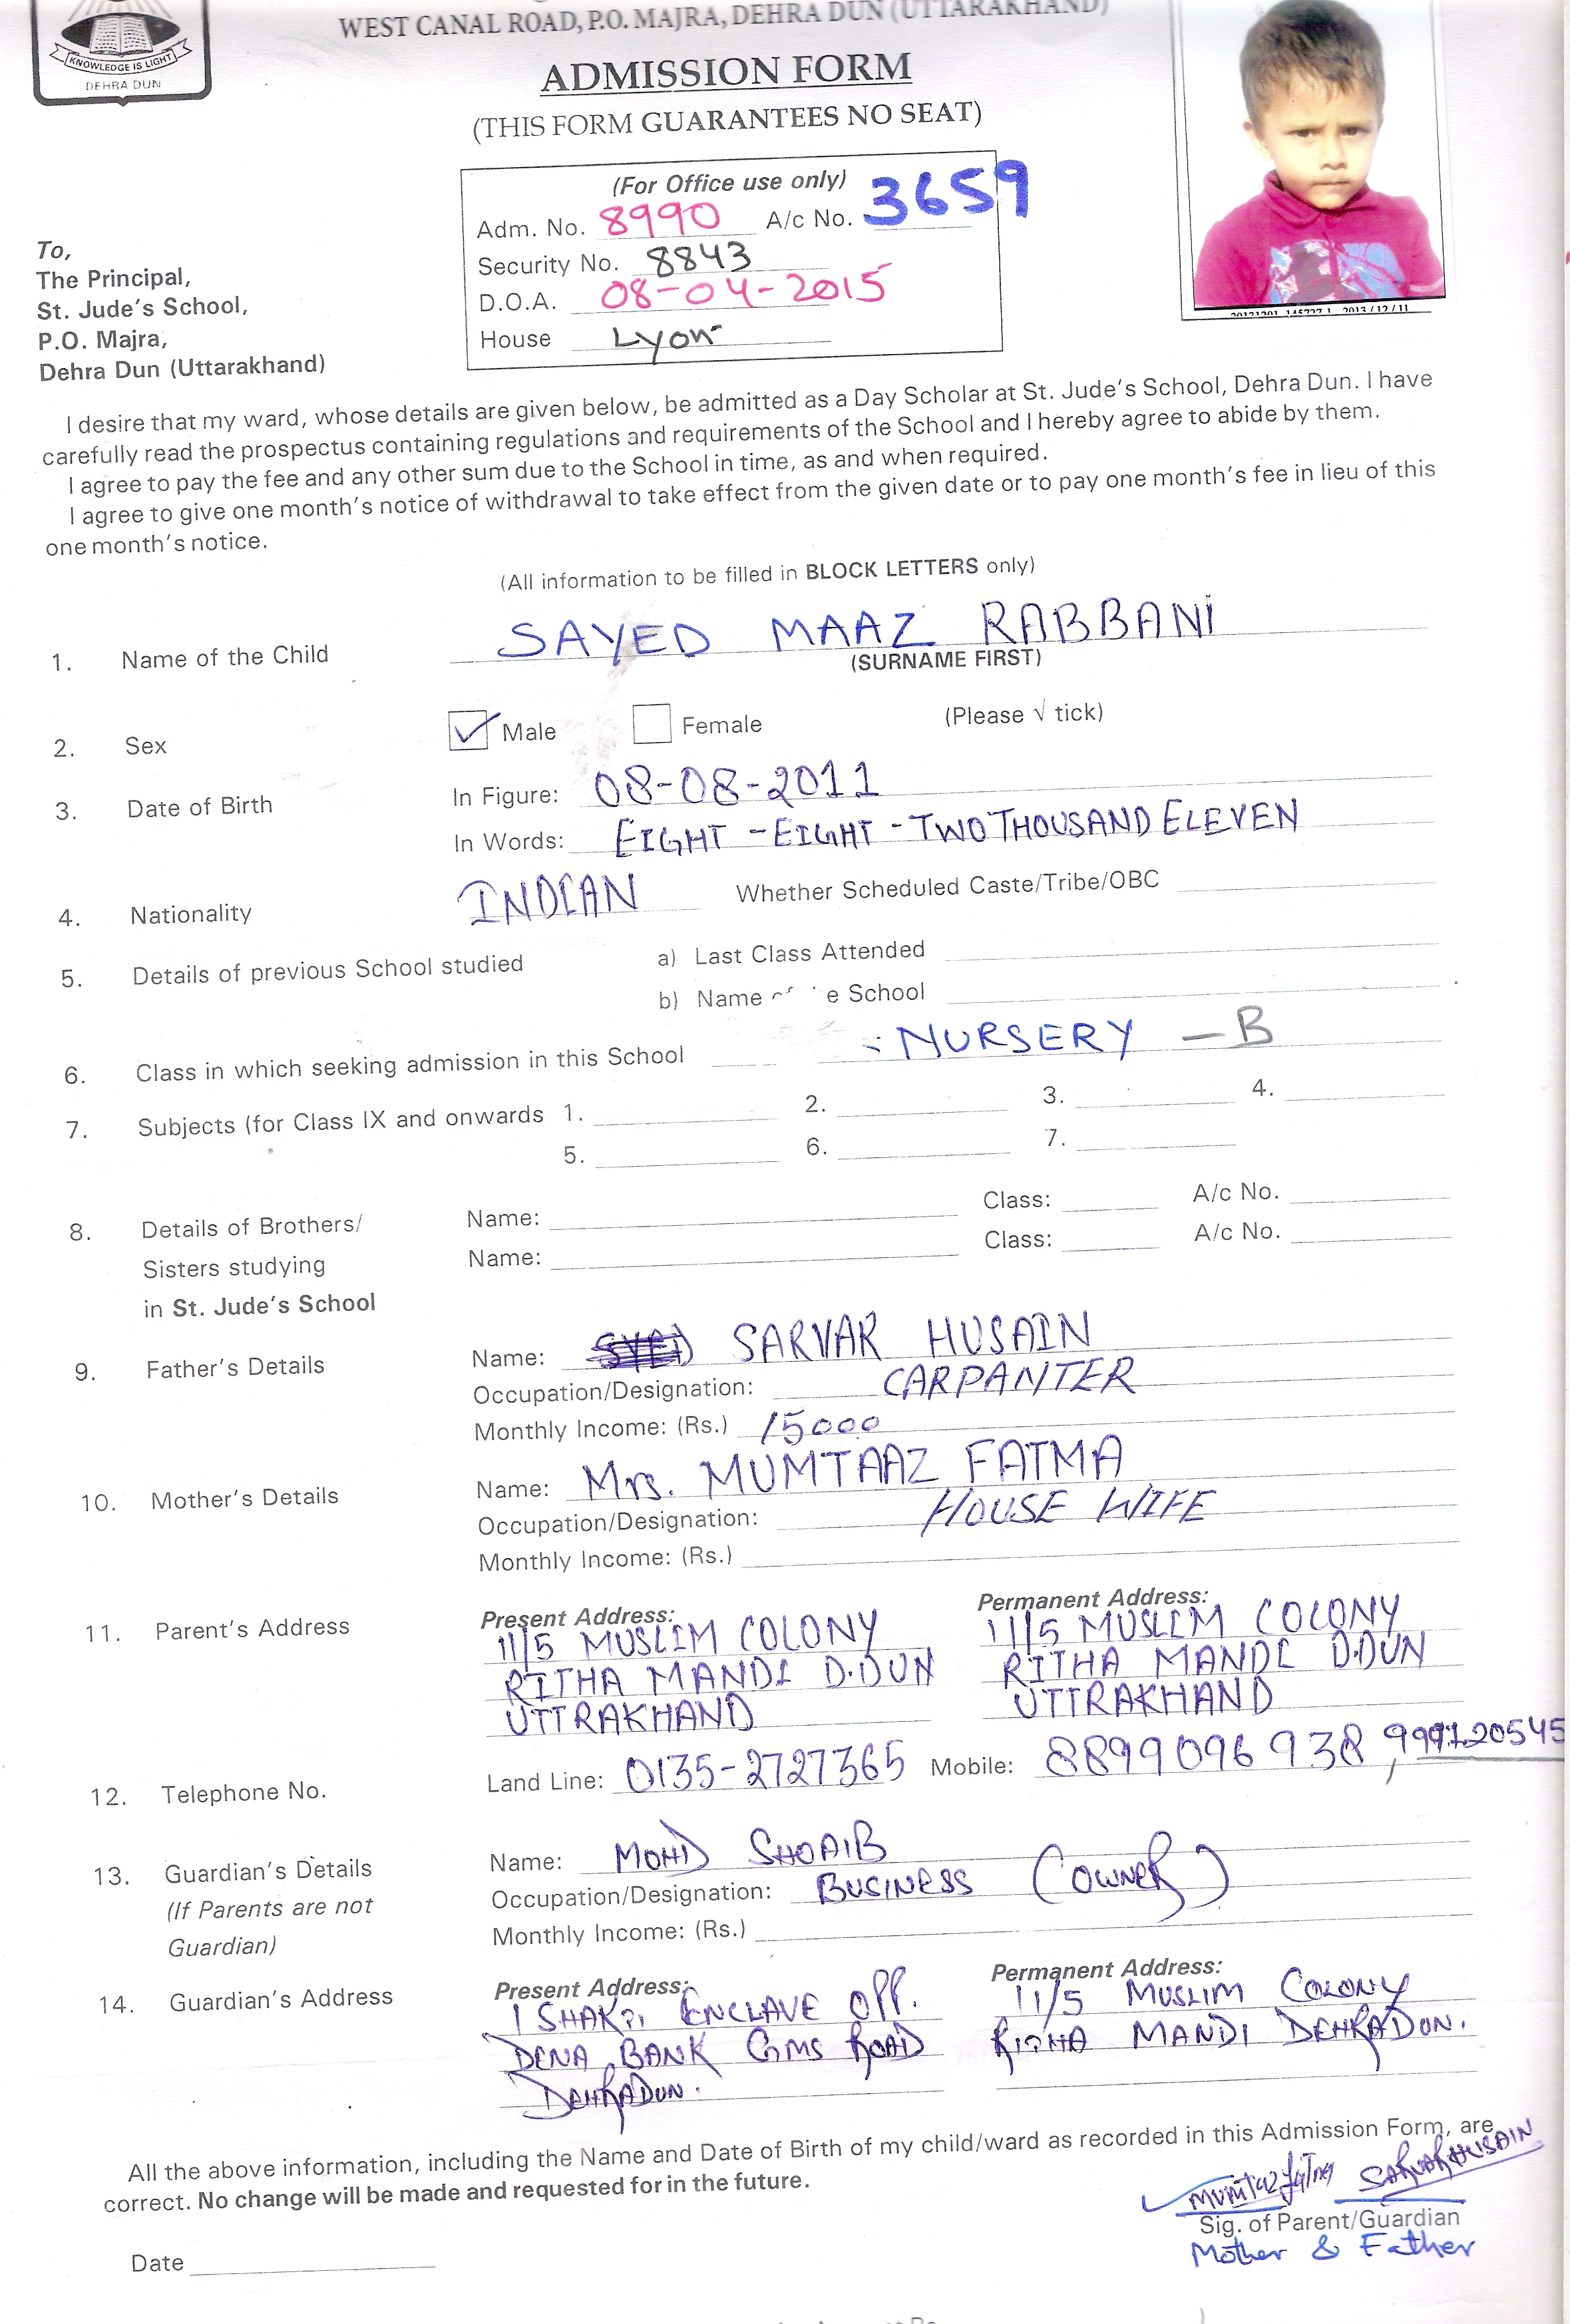 WEST CANAL ROAD, P.O. MAJRA, DEHRA DUN (UTTARAKHAND)
KNOWLEDGE IS LIGHT
DEHRA DUN
ADMISSION FORM
(THIS FORM GUARANTEES NO SEAT)
(For Office use only)
Adm. No. 8990 A/c No. 3659
Security No. 8843
D.O.A. 08-04-2015
House Lyon
To,
The Principal,
St. Jude's School,
P.O. Majra,
Dehra Dun (Uttarakhand)
I desire that my ward, whose details are given below, be admitted as a Day Scholar at St. Jude's School, Dehra Dun. I have
carefully read the prospectus containing regulations and requirements of the School and I hereby agree to abide by them.
I agree to pay the fee and any other sum due to the School in time, as and when required.
I agree to give one month's notice of withdrawal to take effect from the given date or to pay one month's fee in lieu of this
one month's notice.
(All information to be filled in BLOCK LETTERS only)
1. Name of the Child SAYED MAAZ RABBANI
(SURNAME FIRST)
2. Sex ✓ Male Female (Please √ tick)
3. Date of Birth In Figure: 08-08-2011
In Words: EIGHT - EIGHT - TWO THOUSAND ELEVEN
4. Nationality INDIAN Whether Scheduled Caste/Tribe/OBC
5. Details of previous School studied a) Last Class Attended
b) Name e School
6. Class in which seeking admission in this School NURSERY — B
7. Subjects (for Class IX and onwards 1. 2. 3. 4.
5. 6. 7.
8. Details of Brothers/ Name: Class: A/c No.
Sisters studying Name: Class: A/c No.
in St. Jude's School
9. Father's Details Name: SARVAR HUSAIN
Occupation/Designation: CARPANTER
Monthly Income: (Rs.) 15000
10. Mother's Details Name: Mrs. MUMTAAZ FATMA
Occupation/Designation: HOUSE WIFE
Monthly Income: (Rs.)
11. Parent's Address Present Address: Permanent Address:
11/5 MUSLIM COLONY 11/5 MUSLIM COLONY
RITHA MANDI D.DUN RITHA MANDI D.DUN
UTTRAKHAND UTTRAKHAND
12. Telephone No. Land Line: 0135-2727365 Mobile: 8899096938,
13. Guardian's Details Name: MOHD SHOAIB
(If Parents are not Occupation/Designation: BUSINESS (OWNER)
Guardian) Monthly Income: (Rs.)
14. Guardian's Address Present Address: Permanent Address:
1 SHAKTI ENCLAVE OFF. 11/5 MUSLIM COLONY
DENA BANK GMS ROAD RITHA MANDI DEHRADUN.
DEHRADUN.
All the above information, including the Name and Date of Birth of my child/ward as recorded in this Admission Form, are
correct. No change will be made and requested for in the future.
Mumtaz Fatma SARVAR HUSAIN
Sig. of Parent/Guardian
Mother & Father
Date